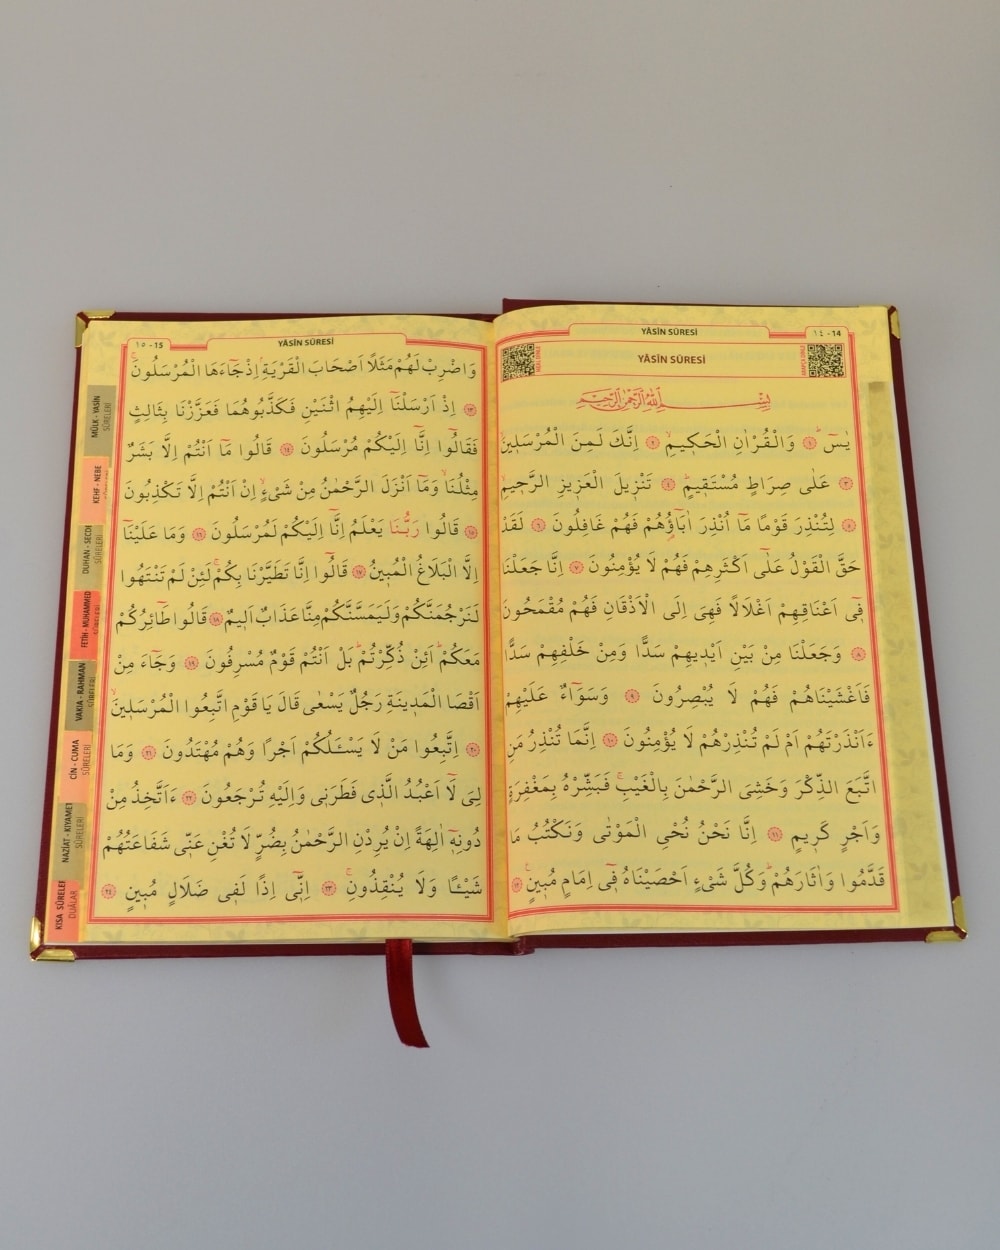 YÂSÎN SÛRESİ
١٤ - 14
YÂSÎN SÛRESİ
بِسْــــــمِ اللّٰهِ الرَّحْمٰنِ الرَّحٖيمِ
يٰسٓ ۚ ﴿١﴾ وَالْقُرْاٰنِ الْحَكٖيمِ ۙ ﴿٢﴾ اِنَّكَ لَمِنَ الْمُرْسَلٖينَ ۙ
﴿٣﴾ عَلٰى صِرَاطٍ مُسْتَقٖيمٍ ۜ ﴿٤﴾ تَنْزٖيلَ الْعَزٖيزِ الرَّحٖيمِ ۙ
﴿٥﴾ لِتُنْذِرَ قَوْمًا مَٓا اُنْذِرَ اٰبَٓاؤُ۬هُمْ فَهُمْ غَافِلُونَ ﴿٦﴾ لَقَدْ
حَقَّ الْقَوْلُ عَلٰٓى اَكْثَرِهِمْ فَهُمْ لَا يُؤْمِنُونَ ﴿٧﴾ اِنَّا جَعَلْنَا
فٖٓى اَعْنَاقِهِمْ اَغْلَالًا فَهِىَ اِلَى الْاَذْقَانِ فَهُمْ مُقْمَحُونَ
﴿٨﴾ وَجَعَلْنَا مِنْ بَيْنِ اَيْدٖيهِمْ سَدًّا وَمِنْ خَلْفِهِمْ سَدًّا
فَاَغْشَيْنَاهُمْ فَهُمْ لَا يُبْصِرُونَ ﴿٩﴾ وَسَوَٓاءٌ عَلَيْهِمْ
ءَاَنْذَرْتَهُمْ اَمْ لَمْ تُنْذِرْهُمْ لَا يُؤْمِنُونَ ﴿١٠﴾ اِنَّمَا تُنْذِرُ مَنِ
اتَّبَعَ الذِّكْرَ وَخَشِىَ الرَّحْمٰنَ بِالْغَيْبِ ۚ فَبَشِّرْهُ بِمَغْفِرَةٍ
وَاَجْرٍ كَرٖيمٍ ﴿١١﴾ اِنَّا نَحْنُ نُحْيِ الْمَوْتٰى وَنَكْتُبُ مَا
قَدَّمُوا وَاٰثَارَهُمْ ۜ وَكُلَّ شَىْءٍ اَحْصَيْنَاهُ فٖٓى اِمَامٍ مُبٖينٍ ۟ ﴿١٢﴾
YÂSÎN SÛRESİ
١٥ - 15
وَاضْرِبْ لَهُمْ مَثَلًا اَصْحَابَ الْقَرْيَةِ ۢ اِذْ جَٓاءَهَا الْمُرْسَلُونَ ۚ
﴿١٣﴾ اِذْ اَرْسَلْنَٓا اِلَيْهِمُ اثْنَيْنِ فَكَذَّبُوهُمَا فَعَزَّزْنَا بِثَالِثٍ
فَقَالُٓوا اِنَّٓا اِلَيْكُمْ مُرْسَلُونَ ﴿١٤﴾ قَالُوا مَٓا اَنْتُمْ اِلَّا بَشَرٌ
مِثْلُنَا ۙ وَمَٓا اَنْزَلَ الرَّحْمٰنُ مِنْ شَىْءٍ ۙ اِنْ اَنْتُمْ اِلَّا تَكْذِبُونَ
﴿١٥﴾ قَالُوا رَبُّنَا يَعْلَمُ اِنَّٓا اِلَيْكُمْ لَمُرْسَلُونَ ﴿١٦﴾ وَمَا عَلَيْنَٓا
اِلَّا الْبَلَاغُ الْمُبٖينُ ﴿١٧﴾ قَالُٓوا اِنَّا تَطَيَّرْنَا بِكُمْ ۚ لَئِنْ لَمْ تَنْتَهُوا
لَنَرْجُمَنَّكُمْ وَلَيَمَسَّنَّكُمْ مِنَّا عَذَابٌ اَلٖيمٌ ﴿١٨﴾ قَالُوا طَٓائِرُكُمْ
مَعَكُمْ ۜ اَئِنْ ذُكِّرْتُمْ ۜ بَلْ اَنْتُمْ قَوْمٌ مُسْرِفُونَ ﴿١٩﴾ وَجَٓاءَ مِنْ
اَقْصَا الْمَدٖينَةِ رَجُلٌ يَسْعٰى قَالَ يَا قَوْمِ اتَّبِعُوا الْمُرْسَلٖينَ ۙ
﴿٢٠﴾ اِتَّبِعُوا مَنْ لَا يَسْـَٔلُكُمْ اَجْرًا وَهُمْ مُهْتَدُونَ ﴿٢١﴾ وَمَا
لِىَ لَٓا اَعْبُدُ الَّذٖى فَطَرَنٖى وَاِلَيْهِ تُرْجَعُونَ ﴿٢٢﴾ ءَاَتَّخِذُ مِنْ
دُونِهٖٓ اٰلِهَةً اِنْ يُرِدْنِ الرَّحْمٰنُ بِضُرٍّ لَا تُغْنِ عَنّٖى شَفَاعَتُهُمْ
شَيْـًٔا وَلَا يُنْقِذُونِ ۚ ﴿٢٣﴾ اِنّٖٓى اِذًا لَفٖى ضَلَالٍ مُبٖينٍ ﴿٢٤﴾
MÜLK - YASİN
SÛRELERİ
KEHF - NEBE
DUHAN - SECDE
SÛRELERİ
FETİH - MUHAMMED
SÛRELERİ
VAKIA - RAHMAN
SÛRELERİ
CİN - CUMA
SÛRELERİ
NAZİAT - KIYAMET
SÛRELERİ
KISA SÛRELER
DUÂLAR